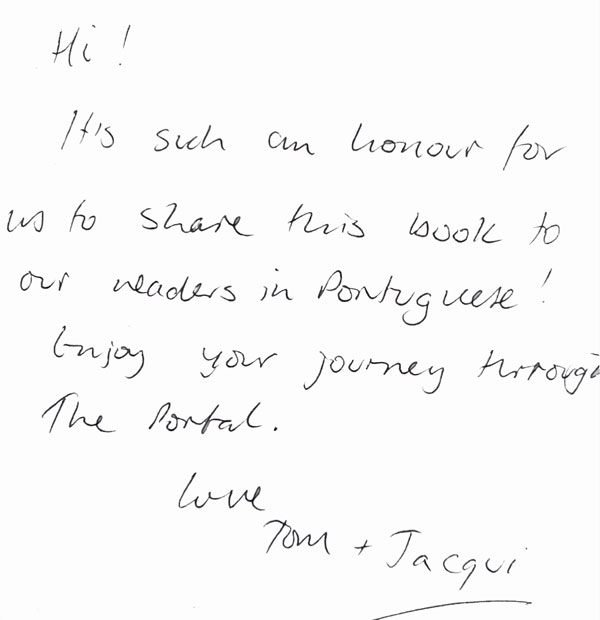 Hi!
It's such an honour for
us to share this book to
our readers in Portuguese!
Enjoy your journey through
The Portal.
Love
Tom + Jacqui